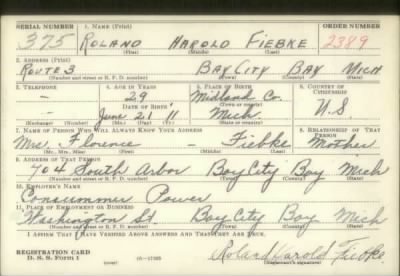 SERIAL NUMBER 1. NAME (Print) ORDER NUMBER
375 ROLAND HAROLD FIEBKE 2389
(First) (Middle) (Last)
2. ADDRESS (Print)
ROUTE 3 BAY CITY BAY MICH
(Number and street or R. F. D. number) (Town) (County) (State)
3. TELEPHONE 4. AGE IN YEARS 5. PLACE OF BIRTH 6. COUNTRY OF CITIZENSHIP
- 29 Midland Co.
DATE OF BIRTH (Town or county)
- June 21 '11 Mich U.S.
(Exchange) (Number) (Mo.) (Day) (Yr.) (State or country)
7. NAME OF PERSON WHO WILL ALWAYS KNOW YOUR ADDRESS 8. RELATIONSHIP OF THAT PERSON
Mrs. Florence - Fiebke Mother
(Mr., Mrs., Miss) (First) (Middle) (Last)
9. ADDRESS OF THAT PERSON
704 South Arbor Bay City Bay Mich
(Number and street or R. F. D. number) (Town) (County) (State)
10. EMPLOYER'S NAME
Consummer Power
11. PLACE OF EMPLOYMENT OR BUSINESS
Washington St. Bay City Bay Mich
(Number and street or R. F. D. number) (Town) (County) (State)
I AFFIRM THAT I HAVE VERIFIED ABOVE ANSWERS AND THAT THEY ARE TRUE.
REGISTRATION CARD
D. S. S. FORM 1 (over) Roland Harold Fiebke
(Registrant's signature)